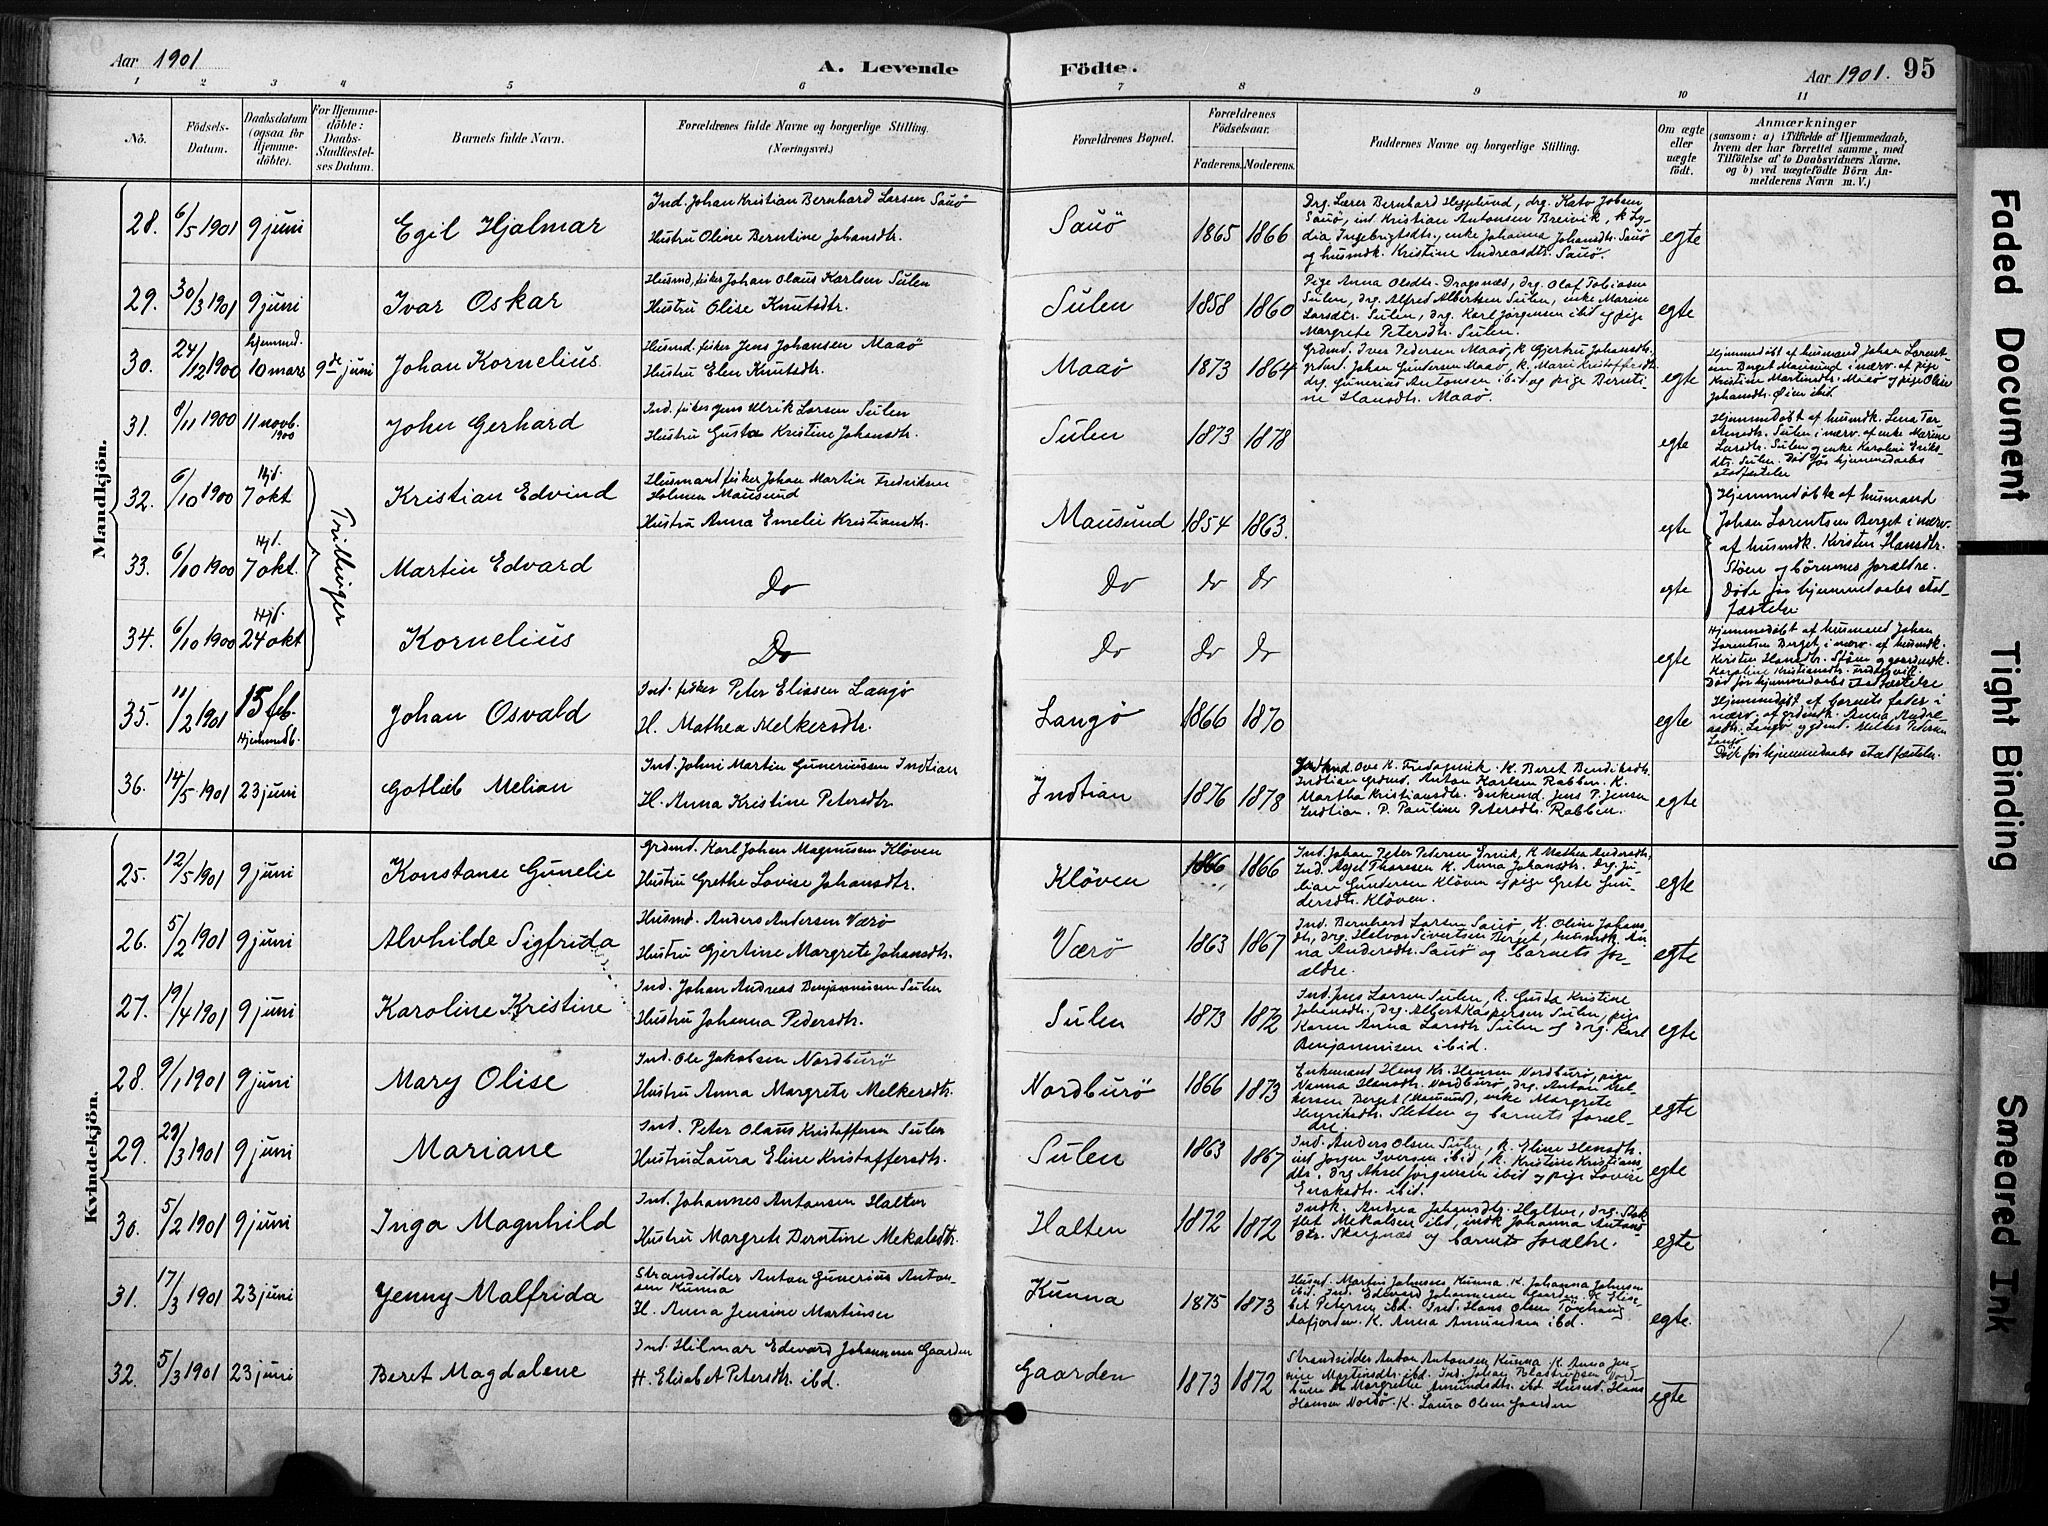 Aar 1901
A. Levende Födte.
Aar 1901. 95
1 2 3 4 5 6 7 8 9 10 11
No.
Födsels-Datum.
Daabsdatum (ogsaa for Hjemme-döbte).
For Hjemme-döbte: Daabs-Stadfæstel-ses Datum.
Barnets fulde Navn.
Forældrenes fulde Navne og borgerlige Stilling. (Næringsvei.)
Forældrenes Bopæl.
Forældrenes Födselsaar.
Faderens. Moderens.
Faddernes Navne og borgerlige Stilling.
Om ægte eller uægte födt.
Anmærkninger
(saasom: a) i Tilfælde af Hjemmedaab, hvem der har forrettet samme, med Tilföielse af to Daabsvidners Navne, og b) ved uægtefödte Börn An-melderens Navn m. V.)
Mandkjön.
28. 6/5 1901 9 juni Egil Hjalmar
Ind. Johan Kristian Bernhard Larsen Sauö
Hustru Oline Berntine Johansdtr.
Sauö 1865 1866
Drg. Lærer Bernhard Hegglund, drg. Kato Jobsen
Sauö, ind. Kristian Antonsen Breivik, k. Ly-
dia Ingebrigtsdtr., enke Johanna Johansdtr. Sauö
og husmdk. Kristine Andreasdtr. Sauö.
egte
29. 30/3 1901 9 juni Ivar Oskar
Husmd. fisker Johan Olaus Karlsen Sulen
Hustru Olise Knutsdtr.
Sulen 1858 1860
Pige Anna Olsdtr. Dragsnæs, drg. Olaf Tobiasen
Sulen, drg. Alfred Albertsen Sulen, enke Marine
Larsdtr. Sulen, drg. Karl Jørgensen ibid og pige
Margrete Petersdtr. Sulen.
egte
30. 24/12 1900 hjemmed. 10 mars 9de juni Johan Kornelius
Husmd. fisker Jens Johansen Maaö
Hustru Elen Knutsdtr.
Maaö 1873 1864
Grdmd. Iver Pedersen Maaö, k. Gjertru Johansdtr.
grdmd. Johan Gundersen Maaö, k. Marie Kristoffersdtr.
drg. Gunerius Antonsen ibid og pige Bernti-
ne Hansdtr. Maaö.
egte
Hjemmedøbt af husmand Johan Lorent-
sen Berget Mausund i nærv. af pige
Kristine Martinsdtr. Maaö og pige Oline
Johansdtr. Øien ibid.
31. 8/11 1900 11 novb. 1900 John Gerhard
Ind. fisker Jens Ulrik Larsen Sulen
Hustru Gusta Kristine Johansdtr.
Sulen 1873 1878 egte
Hjemmedøbt af husmdk. Lena
Sulen i nærv. af enke Marine
Larsdtr. Sulen og enke Karoline Eriks-
dtr. Sulen. Død før hjemmedaabs
stadfæstelse
32. 6/10 1900 Hjd. 7 okt Kristian Edvind
Husmand fisker Johan Martin Fredriksen
Holmen Mausund
Hustru Anna Emelie Kristiansdtr.
Mausund 1854 1863. egte
Hjemmedøbt af husmand
Johan Lorentsen Berget i nærv.
af husmdk. Kirsten Hansdtr.
Støen og børnenes forældre.
Døde før hjemmedaabs stad-
fæstelse
Trillinger
33. 6/10 1900 Hjd. 7 okt. Martin Edvard
Do Do do do egte
34. 6/10 1900 Hjd. 24 okt Kornelius
Do Do do do egte
Hjemmedøbt af husmand Johan
Lorentsen Berget i nærv. af husmdk.
Kirsten Hansdtr. Støen og gaardmdk.
Karoline Kristiansdtr.
Død før hjemmedaabs stadfæstelse
35. 11/2 1901 15 feb. Hjemmedb. Johan Osvald
Ind. fisker Peter Eliasen Langø
H. Mathea Melkersdtr.
Langø 1866 1870 egte
Hjemmedøbt af barnets fader i
nærv. af grdmdk. Anna Andre-
asdtr. Langø og grdmd. Melker Pedersen
Langø
Død før hjemmedaabs stadfæstelse.
36. 14/5 1901 23 juni Gotlieb Melian
Ind. Johni Martin Guneriussen Indtian
H. Anna Kristine Petersdtr
Indtian 1876 1878
Grdmd. Ove K. Fredagsvik. K. Beret Bendiksdtr.
Indtian Grdmd. Anton Karlsen Rabben K.
Martha Kristiansdtr. Enkemd. Jens P. Jensen
Indtian. P. Pauline Petersdtr. Rabben.
egte
Kvindekjön.
25. 12/5 1901 9 juni Konstanse Gunelie
Grdmd. Karl Johan Magnusen Kløven
Hustru Grethe Lovise Johansdtr.
Kløven 1866 1866
Ind. Johan Peter Petersen Ervik, K. Mathea Andersdtr,
Ind. Aksel Thoresen K. Anna Johansdtr. Drg. Ju-
lian Gundersen Kløven og pige Grete Gun-
dersdtr. Kløven.
egte
26. 5/2 1901 9 juni Alvhilde Sigfrida
Husmd. Anders Andersen Værø
Hustru Gjertine Margrete Johansdtr.
Værö 1863 1867
Ind. Bernhard Larsen Sauö, K. Oline Johans
dtr, drg. Halvor Sivertsen Berget, husmdk. An-
na Andersdtr. Sauö og barnets for-
ældre.
egte
27. 19/4 1901 9 juni Karoline Kristine
Ind. Johan Andreas Benjaminsen Sulen
Hustru Johanna Pedersdtr.
Sulen 1873 1872
Ind. Jens Larsen Sulen, K. Gusta Kristine
Johansdtr., drg. Albert Kaspersen Sulen, pige
Karen Anna Larsdtr. Sulen og drg. Karl
Benjaminsen ibid.
egte
28. 9/1 1901 9 juni Mary Olise
Ind. Ole Jakobsen Nordburö
Hustru Anna Margrete Melkersdtr.
Nordburö 1866 1873
Enkemand Hans Kr. Hansen Nordburö, pige
Nanna Hansdtr. Nordburö, drg. Anton Mel-
kersen Berget (Mausund), enke Margrete
Henriksdtr. Sletten og barnets foræl-
dre.
egte
29. 29/3 1901 9 juni Mariane
Ind. Peter Olaus Kristoffersen Sulen
Hustru Laura Eline Kristoffersdtr.
Sulen 1863 1867
Ind. Anders Olsen Sulen, K. Eline Hansdtr.
ind Jørgen Iversen ibid, K. Kristine Kristians
dtr. drg Aksel Jørgensen ibid og pige Lovise
Enoksdtr. ibid.
egte
30. 5/2 1901 9 juni Inga Magnhild
Ind. Johannes Antonsen Halten
Hustru Margrete Berntine Mekalsdtr.
Halten 1872 1872
Indk. Andrea Johansdtr. Halten, drg.
Mekalsen ibd, indk Johanna Antons
dtr. Skagnæs og barnets forældre.
egte
31. 17/3 1901 23 juni Jenny Malfrida
Strandsidder Anton Gunerius Anton-
sen Kunna
H. Anna Jensine Martinsen
Kunna 1875 1873
Husmd. Martin Johnsen Kunna. K. Johanna Johnsen
ibid. Ind. Edevard Johannesen Gaarden. K. Elisa-
bet Petersen ibd. Ind. Hans Olsen
Aafjorden. K. Anna Amundsen ibd.
egte.
32. 5/3 1901 23 juni Beret Magdalene
Ind Hilmar Edevard Johannesen Gaarden
H. Elisabet Petersdtr. ibd.
Gaarden 1873 1872
Strandsidder Anton Antonsen Kunna. K. Anna Jen-
sine Martinsdtr. ibd. Ind. Johan
K Margrethe Amundsdtr. ibd. Husmd. Hans
Hansen Nordö. K. Laura Olsen Gaarden
egte
Faded Document
Tight Binding
Smeared Ink